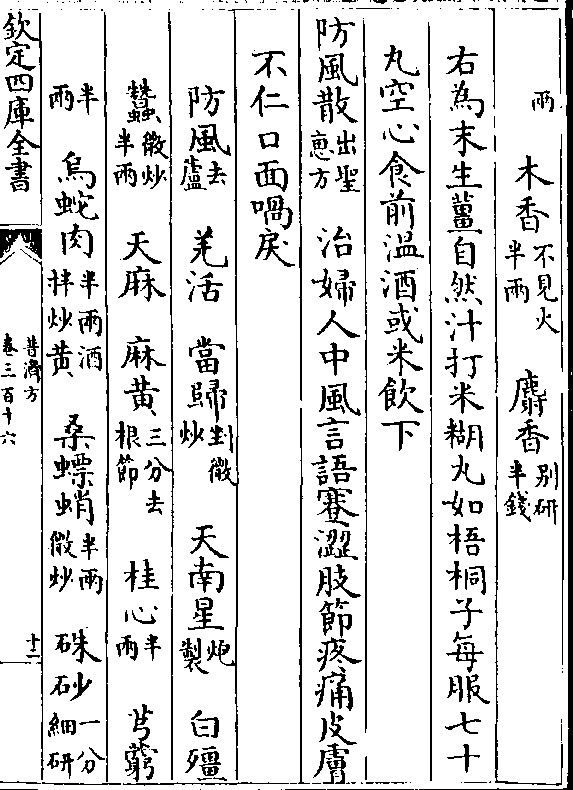 兩　木香不見火半兩　麝香别研半錢
右為末生薑自然汁打米糊丸如梧桐子每服七十
丸空心食前溫酒或米飲下
防風散出聖惠方　治婦人中風言語蹇澀肢節疼痛皮膚
不仁口面喎戾
防風去蘆　羌活　當歸剉微炒　天南星炮製　白殭
蠶微炒半兩　天麻　麻黄三分去根節　桂心半兩　芎藭
半兩　烏蛇肉半兩酒拌炒黄　桑螵蛸半兩微炒　硃砂一分細研
欽定四庫全書
普濟方
卷三百十六
十二